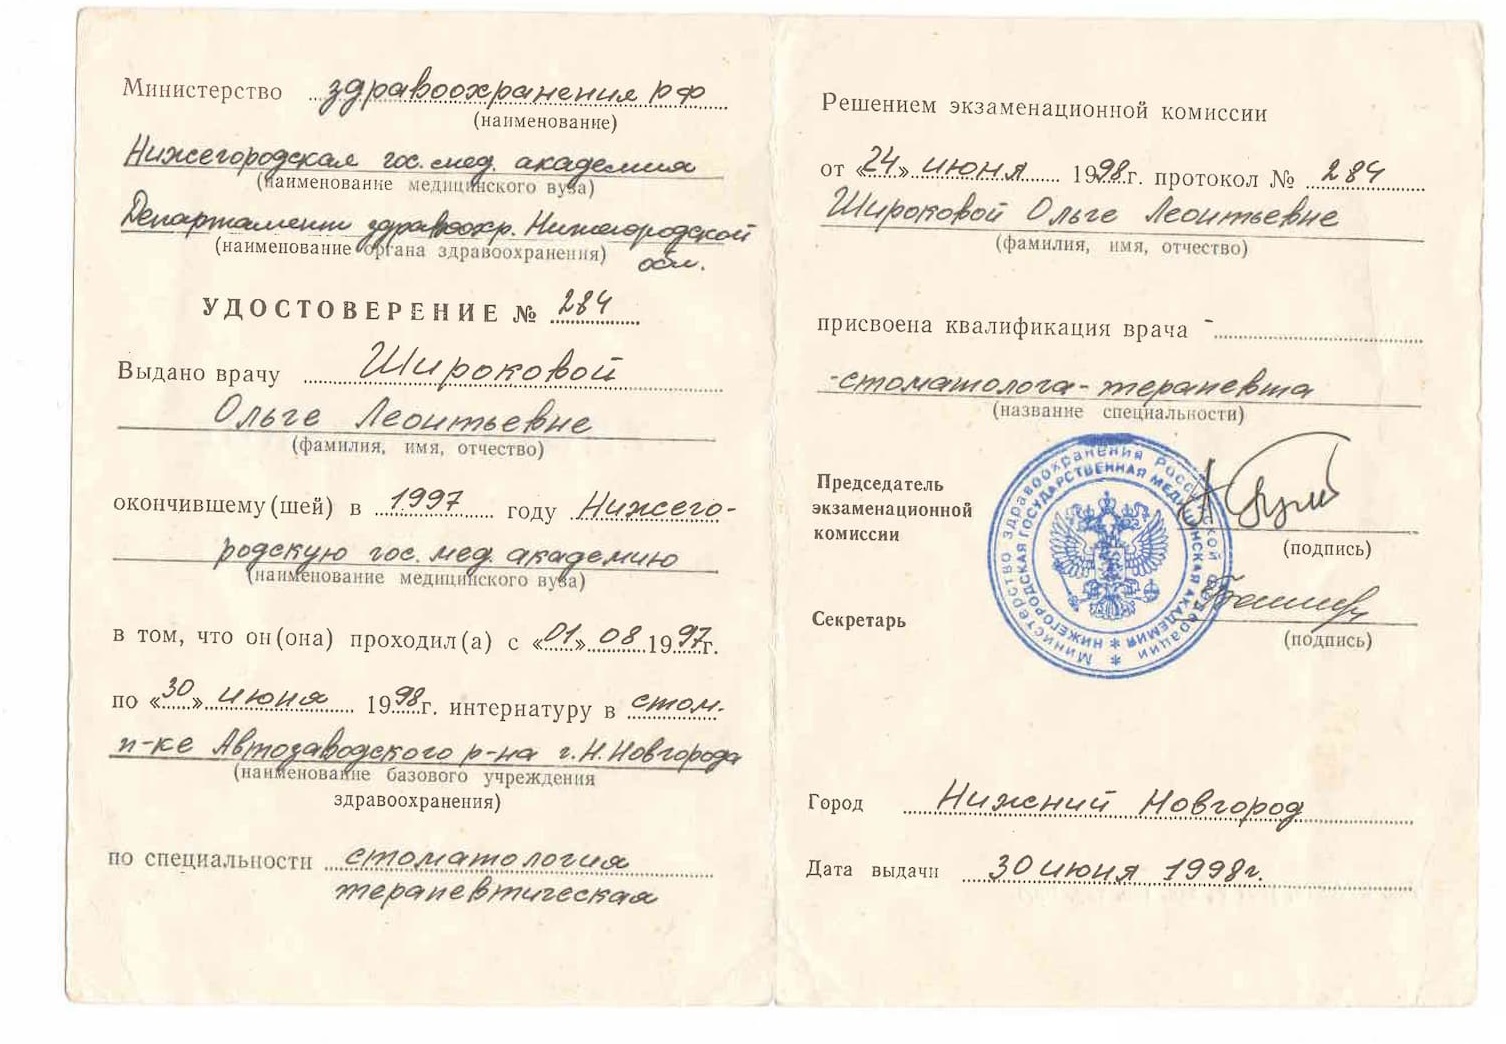 Министерство здравоохранения РФ
(наименование)
Нижегородская гос. мед. академия
(наименование медицинского вуза)
Департамент здравоохр. Нижегородской
обл.
(наименование органа здравоохранения)
УДОСТОВЕРЕНИЕ № 284
Выдано врачу Широковой
Ольге Леонтьевне
(фамилия, имя, отчество)
окончившему(шей) в 1997 году Нижего-
родскую гос. мед. академию
(наименование медицинского вуза)
в том, что он(она) проходил(а) с «01» 08 1997г.
по «30» июня 1998г. интернатуру в стом.
п-ке Автозаводского р-на г. Н. Новгорода
(наименование базового учреждения
здравоохранения)
по специальности стоматология
терапевтическая
Решением экзаменационной комиссии
от «24» июня 1998г. протокол № 284
Широковой Ольге Леонтьевне
(фамилия, имя, отчество)
присвоена квалификация врача -
-стоматолога-терапевта
(название специальности)
Председатель
экзаменационной
комиссии
(подпись)
Секретарь
(подпись)
Министерство здравоохранения Российской Федерации *
НИЖЕГОРОДСКАЯ ГОСУДАРСТВЕННАЯ МЕДИЦИНСКАЯ АКАДЕМИЯ *
Город Нижний Новгород
Дата выдачи 30 июня 1998г.